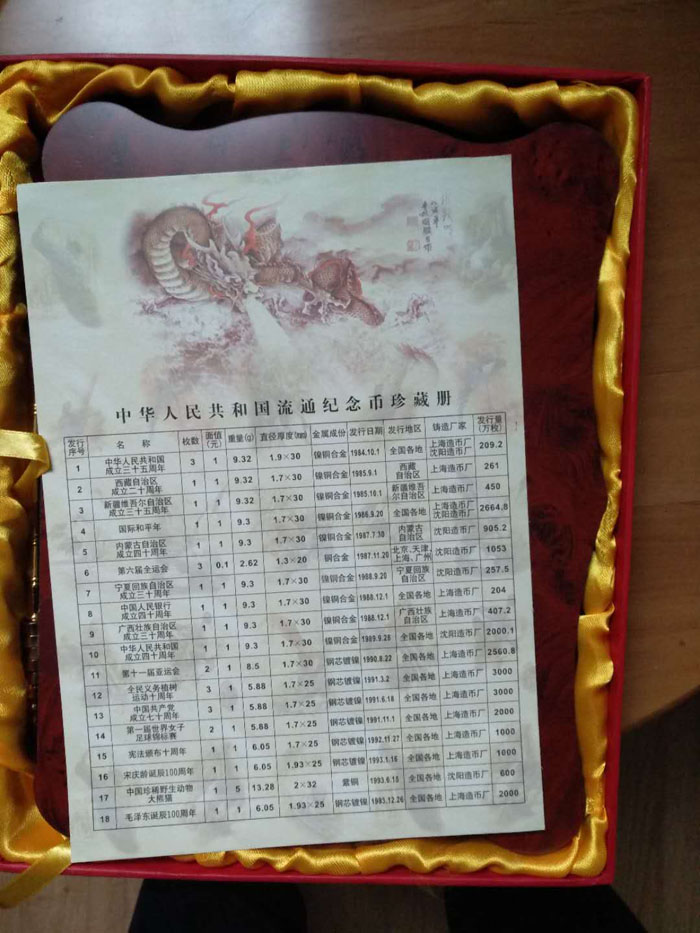 中华人民共和国流通纪念币珍藏册
发行序号 名 称 枚数 面值(元) 重量(g) 直径厚度(mm) 金属成份 发行日期 发行地区 铸造厂家 发行量(万枚)
1 中华人民共和国成立三十五周年 3 1 9.32 1.9×30 镍铜合金 1984.10.1 全国各地 上海造币厂 沈阳造币厂 209.2
2 西藏自治区成立二十周年 1 1 9.32 1.7×30 镍铜合金 1985.9.1 西藏自治区 上海造币厂 261
3 新疆维吾尔自治区成立三十五周年 1 1 9.32 1.7×30 镍铜合金 1985.10.1 新疆维吾尔自治区 上海造币厂 450
4 国际和平年 1 1 9.3 1.7×30 镍铜合金 1986.9.20 全国各地 上海造币厂 沈阳造币厂 2664.8
5 内蒙古自治区成立四十周年 1 1 9.3 1.7×30 镍铜合金 1987.7.30 内蒙古自治区 沈阳造币厂 905.2
6 第六届全运会 3 0.1 2.62 1.3×20 铜合金 1987.11.20 北京、天津、上海、广州 沈阳造币厂 1053
7 宁夏回族自治区成立三十周年 1 1 9.3 1.7×30 镍铜合金 1988.9.20 宁夏回族自治区 沈阳造币厂 257.5
8 中国人民银行成立四十周年 1 1 9.3 1.7×30 镍铜合金 1988.12.1 全国各地 上海造币厂 204
9 广西壮族自治区成立三十周年 1 1 9.3 1.7×30 镍铜合金 1988.12.1 广西壮族自治区 上海造币厂 407.2
10 中华人民共和国成立四十周年 1 1 9.3 1.7×30 镍铜合金 1989.9.28 全国各地 沈阳造币厂 2000.1
11 第十一届亚运会 2 1 8.5 1.7×30 钢芯镀镍 1990.8.22 全国各地 上海造币厂 2560.8
12 全民义务植树运动十周年 3 1 5.88 1.7×25 钢芯镀镍 1991.3.2 全国各地 上海造币厂 3000
13 中国共产党成立七十周年 3 1 5.88 1.7×25 钢芯镀镍 1991.6.18 全国各地 上海造币厂 3000
14 第一届世界女子足球锦标赛 2 1 5.88 1.7×25 钢芯镀镍 1991.11.1 全国各地 上海造币厂 2000
15 宪法颁布十周年 1 1 6.05 1.7×25 钢芯镀镍 1992.11.27 全国各地 上海造币厂 1000
16 宋庆龄诞辰100周年 1 1 6.05 1.93×25 钢芯镀镍 1993.1.16 全国各地 上海造币厂 1000
17 中国珍稀野生动物大熊猫 1 5 13.28 2×32 紫铜 1993.6.15 全国各地 沈阳造币厂 600
18 毛泽东诞辰100周年 1 1 6.05 1.93×25 钢芯镀镍 1993.12.26 全国各地 上海造币厂 2000